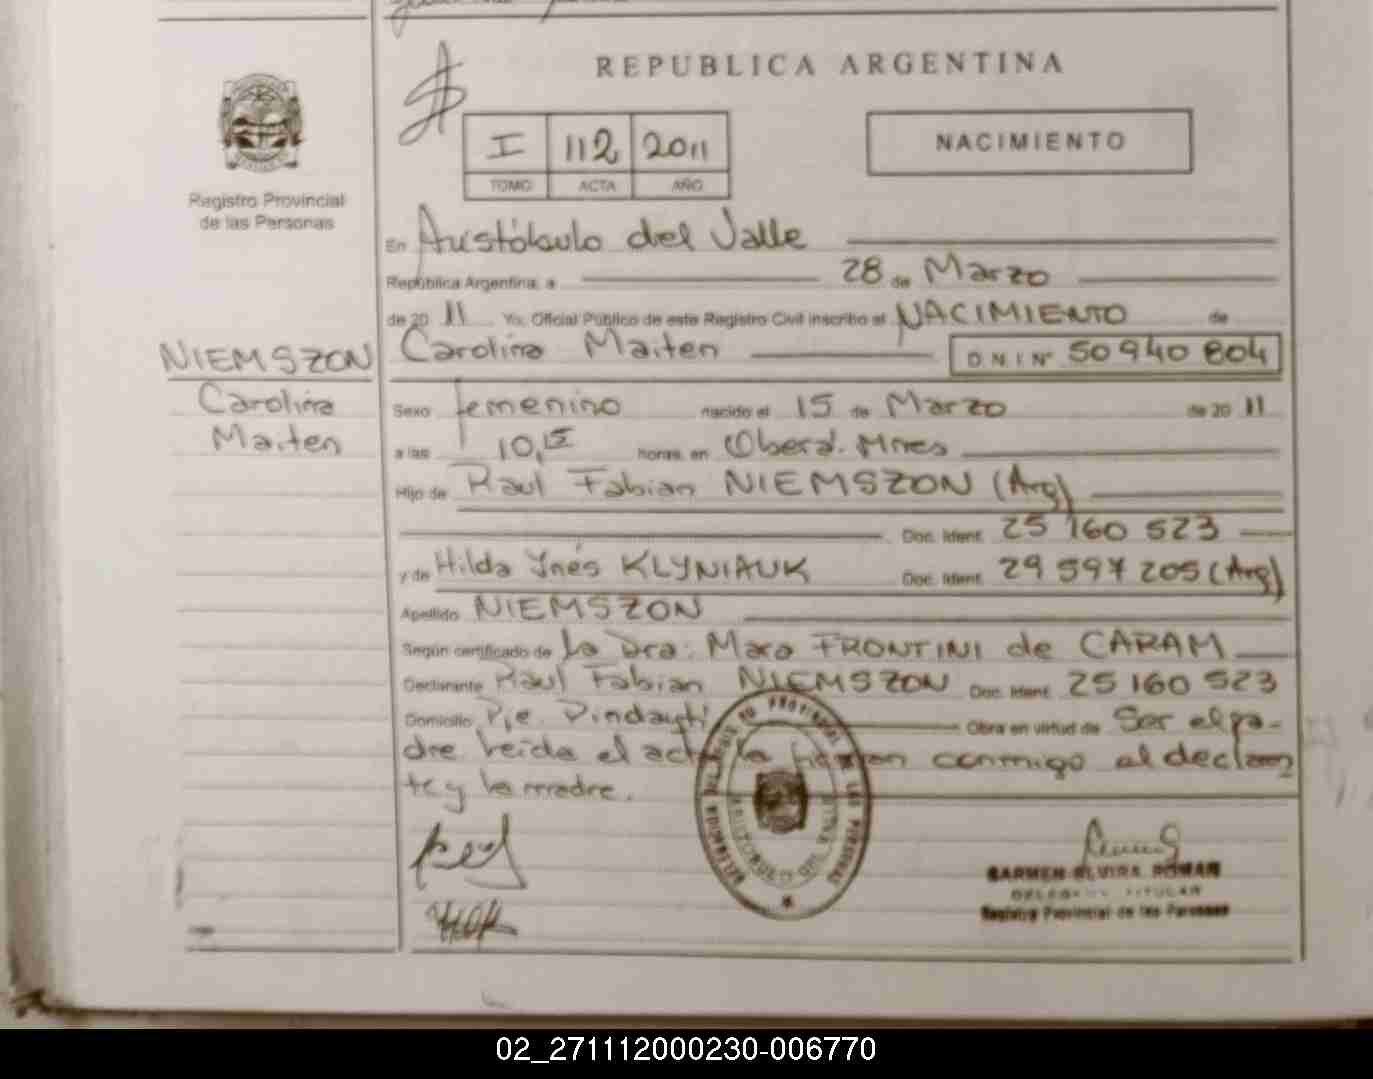 REPUBLICA ARGENTINA
I 112 2011
TOMO ACTA AÑO
NACIMIENTO
Registro Provincial
de las Personas
En Aristóbulo del Valle
República Argentina, a 28 de Marzo
de 20 11 Yo, Oficial Público de este Registro Civil inscribo el NACIMIENTO de
NIEMSZON
Carolina
Maiten
Carolina Maiten D.N.I Nº 50 940 804
Sexo femenino nacido el 15 de Marzo de 20 11
a las 10,15 horas, en Oberá. Mnes
Hijo de Raul Fabian NIEMSZON (Arg)
Doc. Ident. 25 160 523
y de Hilda Ynés KLYNIAUK Doc. Ident. 29 597 205 (Arg)
Apellido NIEMSZON
Según certificado de La Dra. Mara FRONTINI de CARAM
Declarante Raul Fabian NIEMSZON Doc. Ident. 25 160 523
Domicilio Pje. Obra en virtud de Ser el pa-
dre leida el acta la firman conmigo el declaran
te y la madre.
CARMEN ELVIRA ROMAN
DELEGADA TITULAR
Registro Provincial de las Personas
02_271112000230-006770